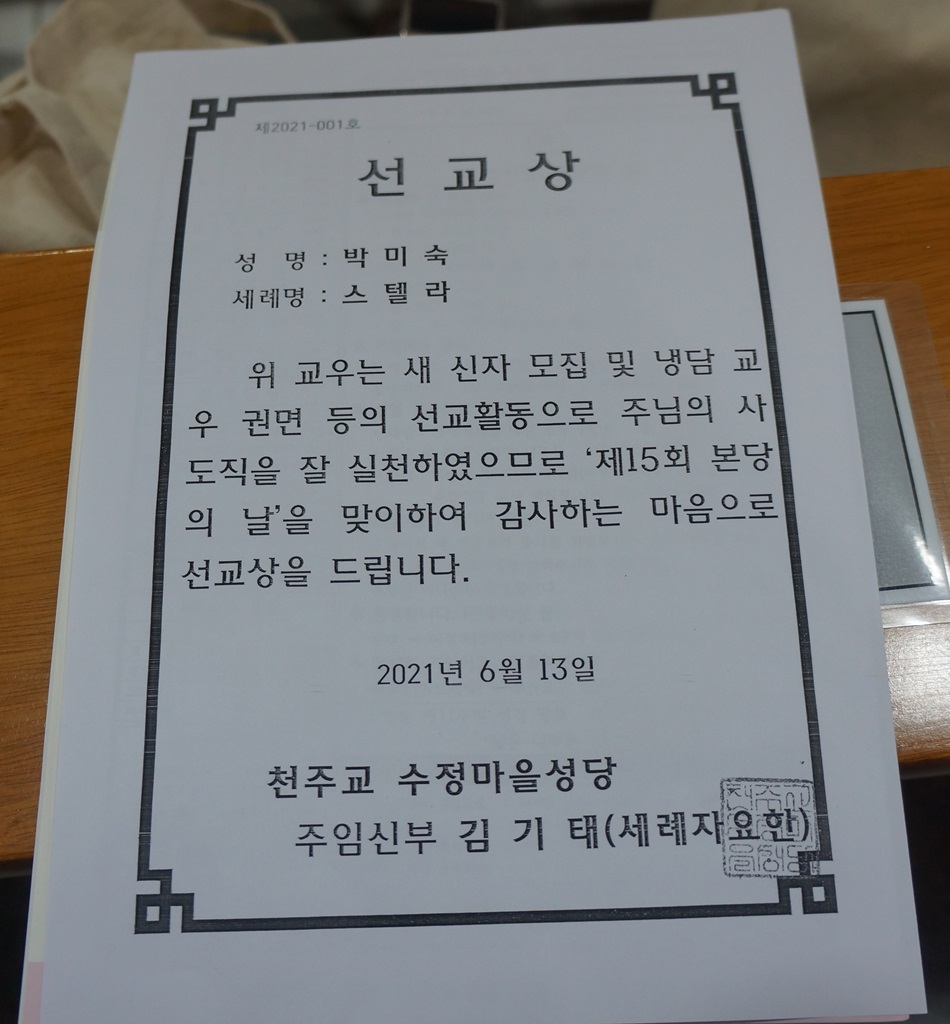 제2021-001호
선 교 상
성 명 : 박 미 숙
세례명 : 스 텔 라
위 교우는 새 신자 모집 및 냉담 교
우 권면 등의 선교활동으로 주님의 사
도직을 잘 실천하였으므로 ‘제15회 본당
의 날’을 맞이하여 감사하는 마음으로
선교상을 드립니다.
2021년 6월 13일
천주교 수정마을성당
주임신부 김 기 태(세례자요한)